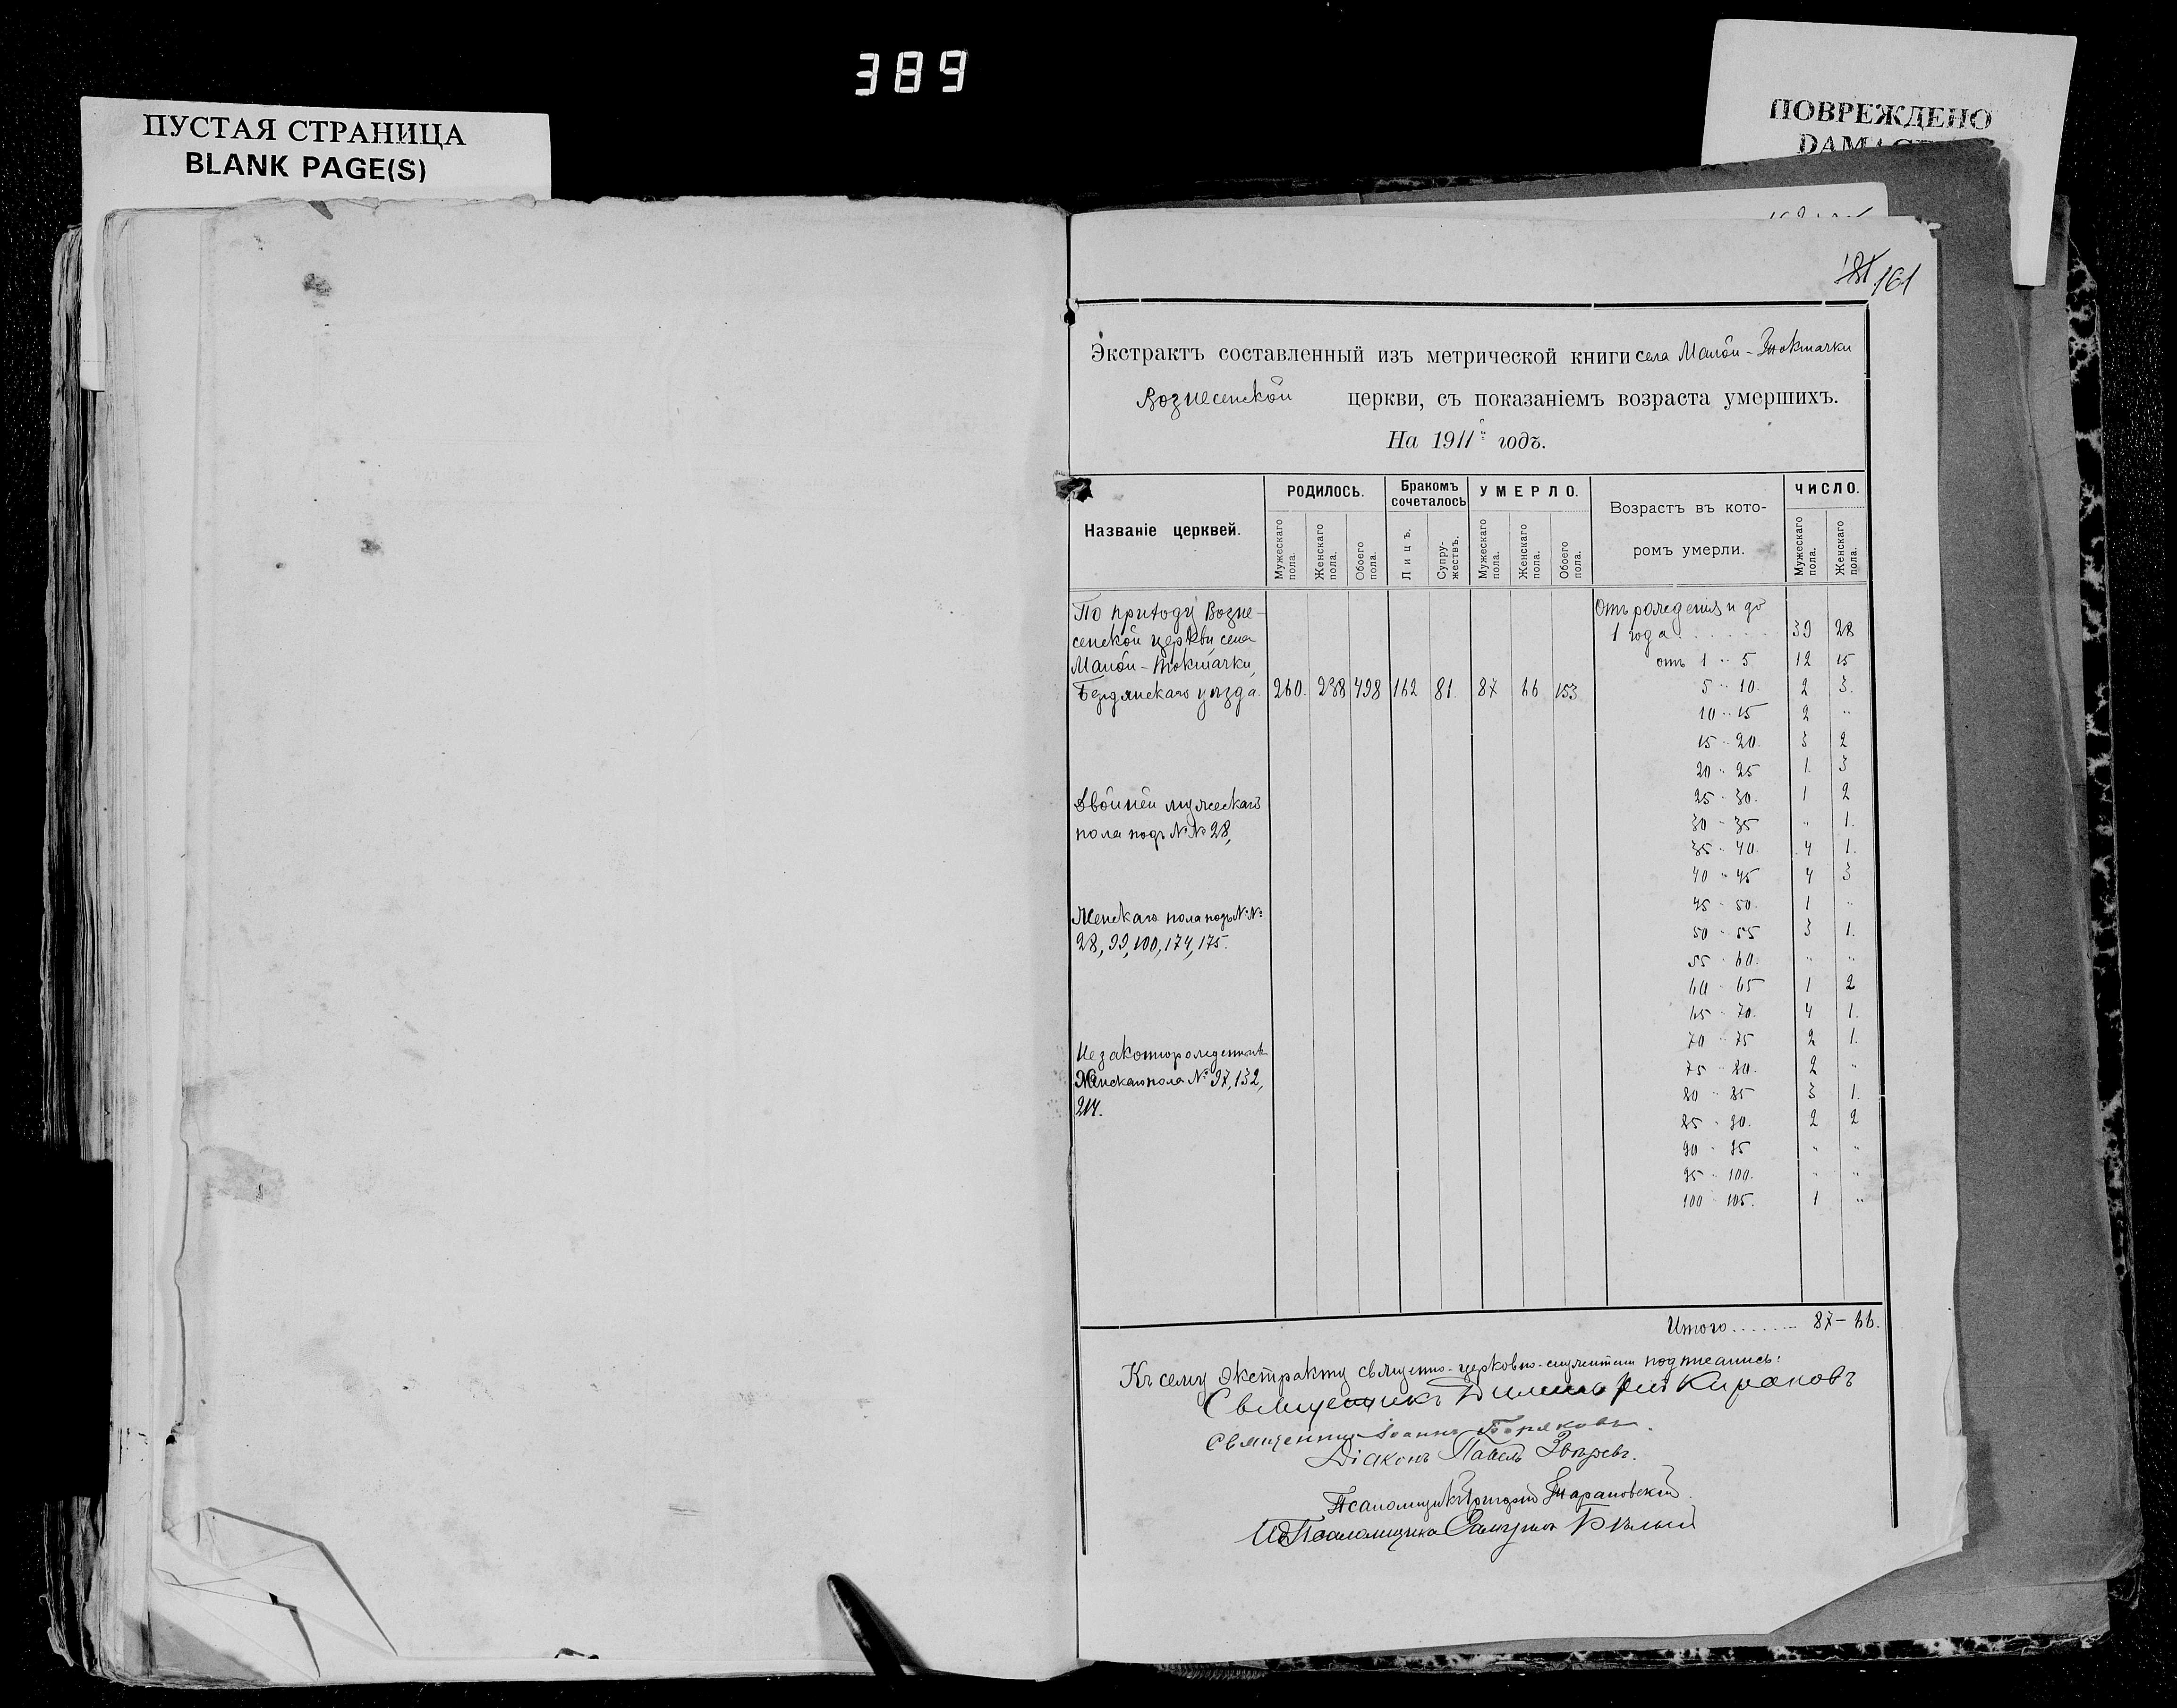 389
ПУСТАЯ СТРАНИЦА
BLANK PAGE(S)
ПОВРЕЖДЕНО
161
Экстрактъ составленный изъ метрической книги села Малой-Токмачки
Вознесенской церкви, съ показаніемъ возраста умершихъ.
На 1911й годъ.
Названіе церквей.
РОДИЛОСЬ.
Бракомъ сочеталось
УМЕРЛО.
Возрастъ въ которомъ умерли.
ЧИСЛО.
Мужескаго пола.
Женскаго пола.
Обоего пола.
Лицъ.
Супружествъ.
Мужескаго пола.
Женскаго пола.
Обоего пола.
Мужескаго пола.
Женскаго пола.
По приходу Возне-
сенской церкви села
Малой-Токмачки,
Бердянскаго уѣзда. 260. 238 498 162 81. 87 66 153
Двойней мужескаго
пола подъ №№ 28,
Женскаго пола подъ №№
28, 99, 100, 174, 175.
Незаконнорожденныхъ
Женскаго пола № 97, 132,
214.
Отъ рожденія и до
1 года . . . . . . 39 28
отъ 1 " 5 12 15
5 " 10. 2 3.
10 " 15 2 "
15 " 20. 3 2
20 " 25 1. 3
25 " 30. 1 2
30 " 35 " 1.
35 " 40. 4 1.
40 " 45 4 3
45 " 50. 1 "
50 " 55 3 1.
55 " 60. " "
60 " 65 1 2
65 " 70. 4 1.
70 " 75 2 1.
75 " 80. 2 "
80 " 85 3 1.
85 " 90. 2 2
90 " 95 " "
95 " 100. " "
100 " 105. 1 "
Итого . . . . . . 87 - 66.
Къ сему экстракту священно-церковно-служители подписались:
Священникъ Димитрій Кирановъ
Священникъ Іоаннъ
Діаконъ Павелъ Звѣревъ.
Псаломщикъ Григорій Тарановскій.
И. д. Псаломщика Самуилъ Бѣлый